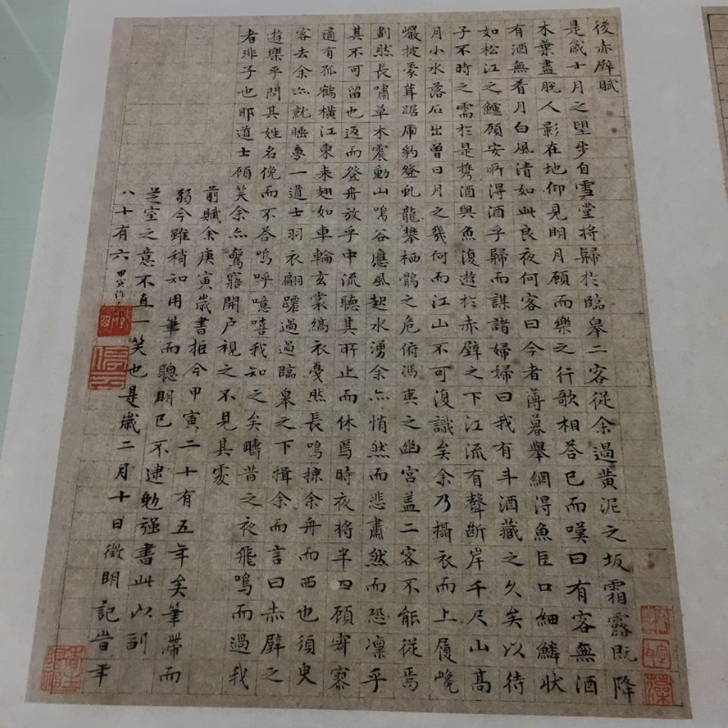 後赤壁賦
是歲十月之望步自雪堂將歸於臨皋二客從余過黃泥之坂霜露既降
木葉盡脫人影在地仰見明月顧而樂之行歌相答已而嘆曰有客無酒
有酒無肴月白風清如此良夜何客曰今者薄暮舉網得魚巨口細鱗狀
如松江之鱸顧安所得酒乎歸而謀諸婦婦曰我有斗酒藏之久矣以待
子不時之需於是攜酒與魚復遊於赤壁之下江流有聲斷岸千尺山高
月小水落石出曾日月之幾何而江山不可復識矣余乃攝衣而上履巉
巖披蒙茸踞虎豹登虬龍攀栖鶻之危俯馮夷之幽宮蓋二客不能從焉
劃然長嘯草木震動山鳴谷應風起水湧余亦悄然而悲肅然而恐凜乎
其不可留也返而登舟放乎中流聽其所止而休焉時夜將半四顧寂寥
適有孤鶴橫江東來翅如車輪玄裳縞衣戛然長鳴掠余舟而西也須臾
客去余亦就睡夢一道士羽衣翩躚過過臨皋之下揖余而言曰赤壁之
遊樂乎問其姓名俛而不答嗚呼噫嘻我知之矣疇昔之夜飛鳴而過我
者非子也耶道士顧笑余亦驚寤開戶視之不見其處
前賦余庚寅歲書抵今甲寅二十有五年矣筆滯而
弱今雖稍知用筆而聰明已不逮勉強書此以副
芝室之意不直一笑也是歲二月十日徵明記昔年
八十有六